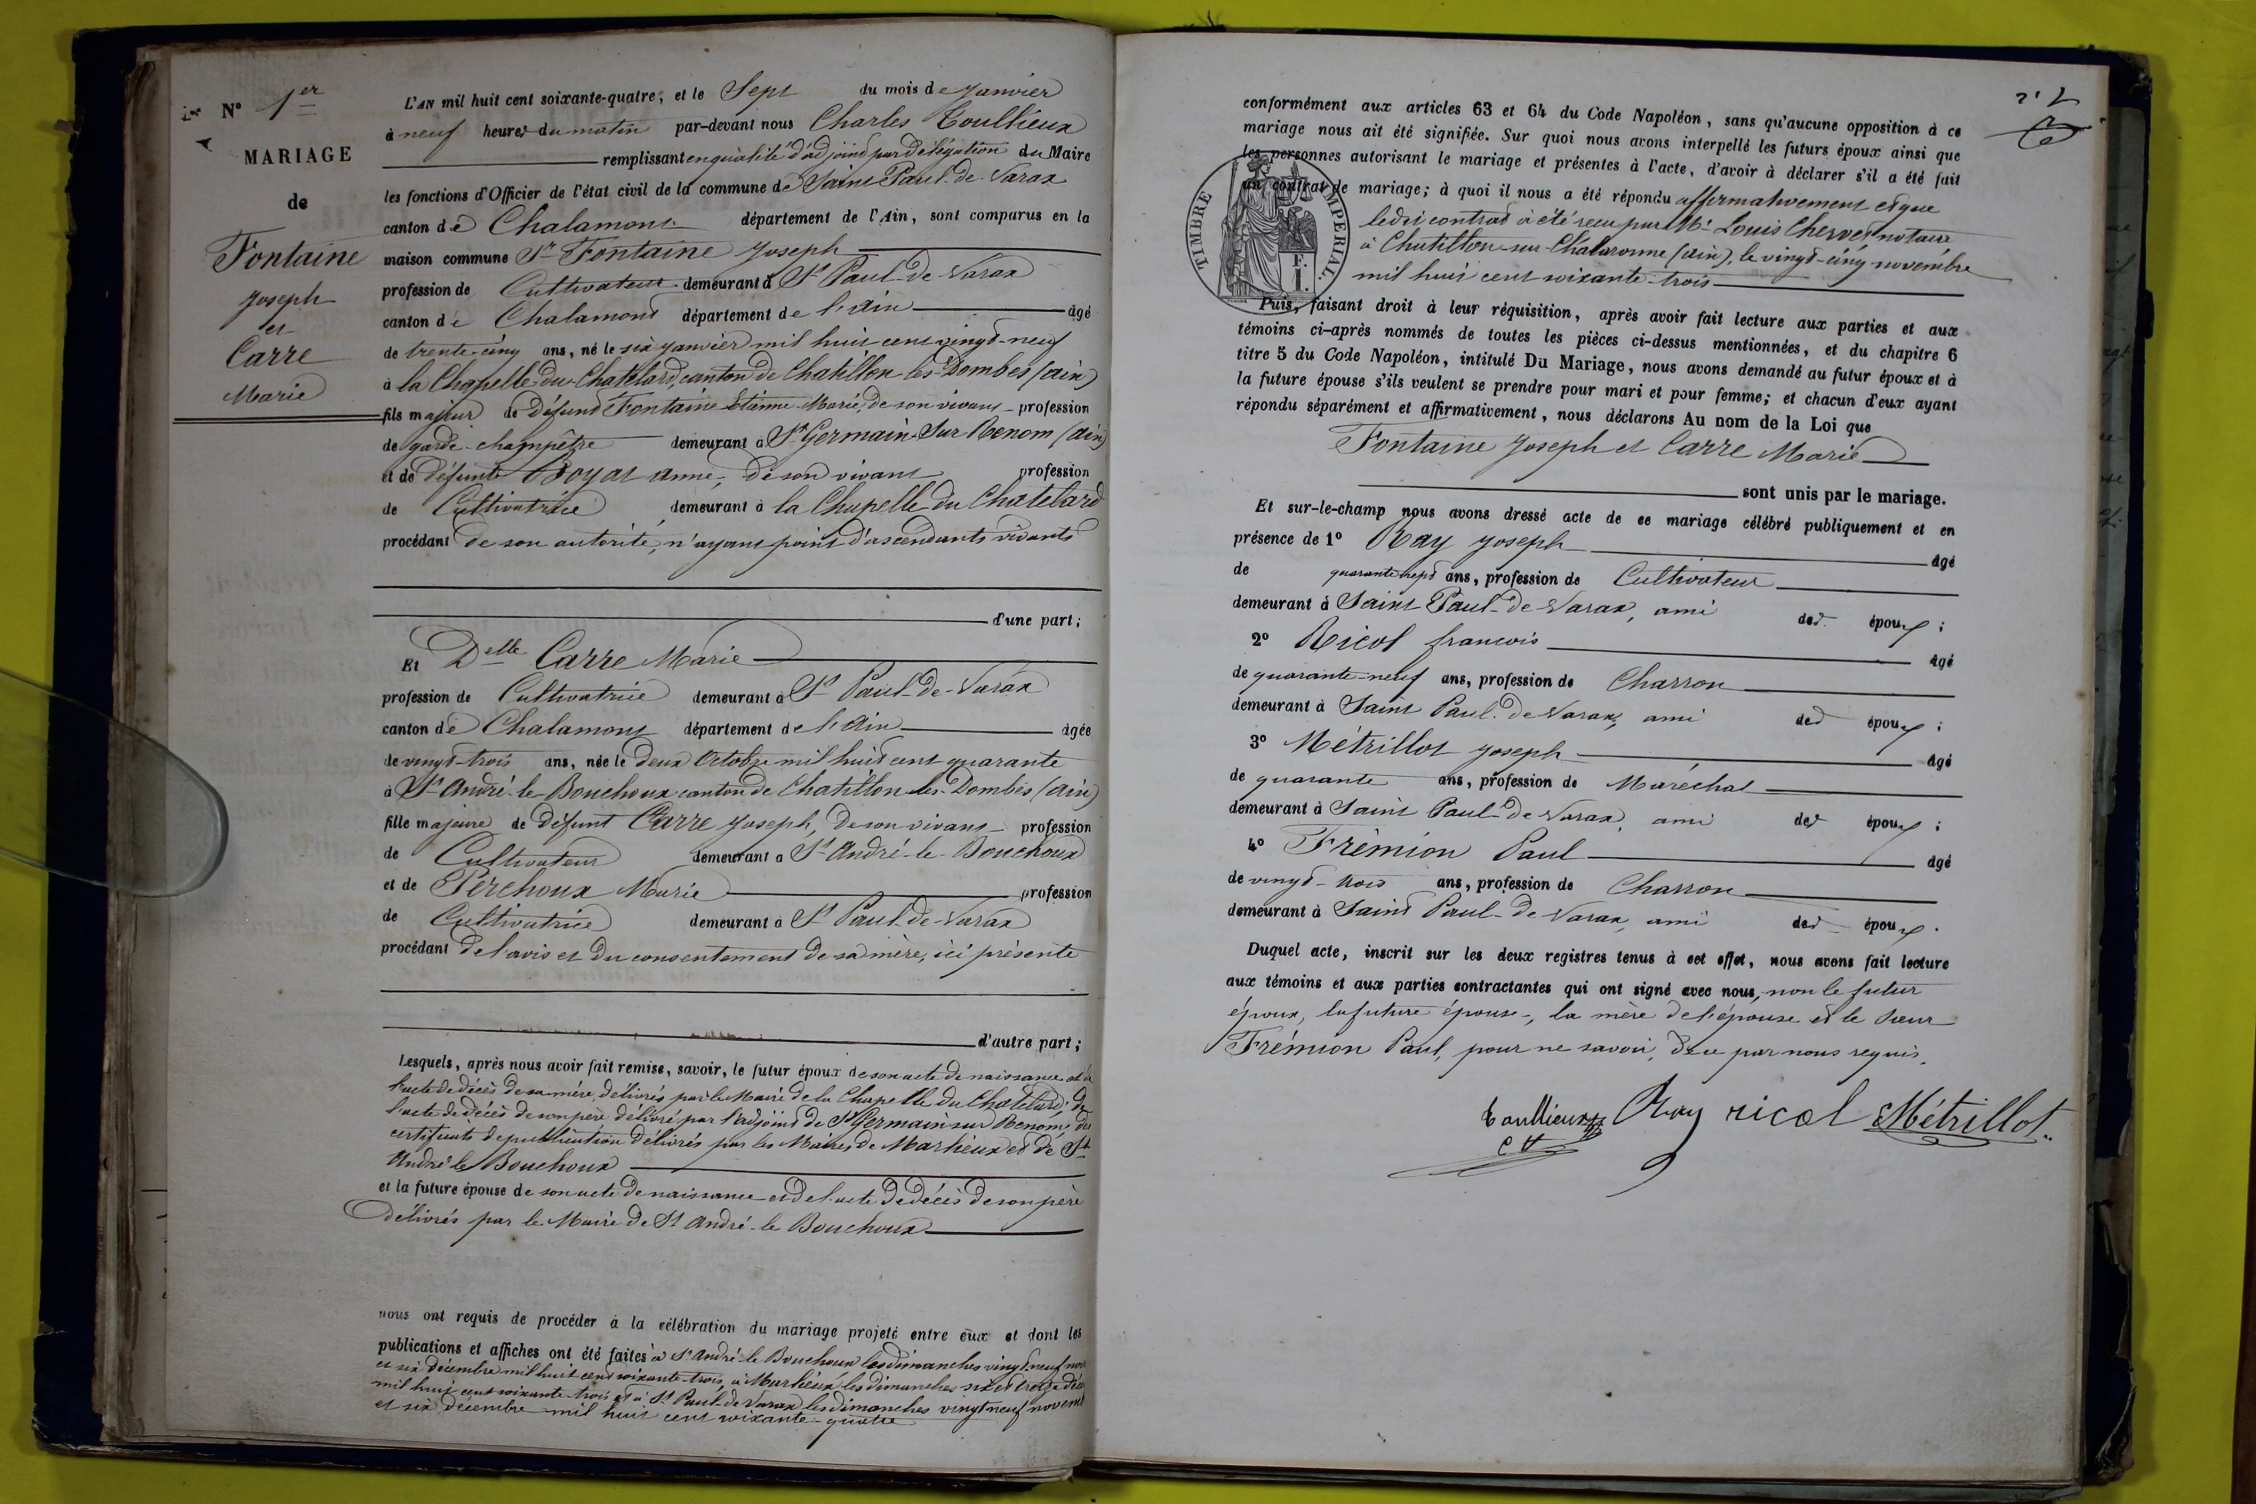 N° 1er
MARIAGE
de
Fontaine
Joseph
et
Carre
Marie
L'AN mil huit cent soixante-quatre, et le Sept du mois de Janvier
à neuf heures du matin par-devant nous Charles Toullieux
remplissant en qualité d'adjoint par délégation du Maire
les fonctions d'Officier de l'état civil de la commune de Saint Paul-de-Varax
canton de Chalamont département de l'Ain, sont comparus en la
maison commune Sr Fontaine Joseph
profession de Cultivateur demeurant à St Paul-de-Varax
canton de Chalamont département de l'Ain âgé
de trente-cinq ans, né le six janvier mil huit cent vingt-neuf
à la Chapelle du Chatelard, canton de Chatillon-les-Dombes (Ain)
fils majeur de défunt Fontaine Etienne Marie, de son vivant profession
de garde-champêtre demeurant à St Germain-sur-Renom (Ain)
et de défunte Boyat Anne, de son vivant profession
de Cultivatrice demeurant à la Chapelle du Chatelard
procédant de son autorité, n'ayant point d'ascendants vivants
d'une part;
Et Delle Carre Marie
profession de Cultivatrice demeurant à St Paul-de-Varax
canton de Chalamont département de l'Ain âgée
de vingt-trois ans, née le deux Octobre mil huit cent quarante
à St André-le-Bouchoux canton de Chatillon-les-Dombes (Ain)
fille majeure de défunt Carre Joseph, de son vivant profession
de Cultivateur demeurant à St André-le-Bouchoux
et de Perchoux Marie profession
de Cultivatrice demeurant à St Paul-de-Varax
procédant de l'avis et du consentement de sa mère, ici présente
d'autre part;
Lesquels, après nous avoir fait remise, savoir, le futur époux de son acte de naissance et de
l'acte de décès de sa mère, délivrés par le Maire de la Chapelle du Chatelard; de
l'acte de décès de son père délivré par l'adjoint de St Germain-sur-Renom; des
certificats de publication délivrés par les Maires de Marlieux et de St
André le Bouchoux
et la future épouse de son acte de naissance et de l'acte de décès de son père
délivrés par le Maire de St André-le Bouchoux
nous ont requis de procéder à la célébration du mariage projeté entre eux et dont les
publications et affiches ont été faites à St André-le-Bouchoux les dimanches vingt-neuf nov
et six décembre mil huit cent soixante-trois, à Marlieux les dimanches six et treize déc
mil huit cent soixante-trois et à St Paul-de-Varax les dimanches vingt-neuf novemb
et six décembre mil huit cent soixante-quatre
conformément aux articles 63 et 64 du Code Napoléon, sans qu'aucune opposition à ce
mariage nous ait été signifiée. Sur quoi nous avons interpellé les futurs époux ainsi que
les personnes autorisant le mariage et présentes à l'acte, d'avoir à déclarer s'il a été fait
un contrat de mariage; à quoi il nous a été répondu affirmativement et que
ledit contrat a été reçu par Me Louis Chervet notaire
à Chatillon-sur-Chalaronne (Ain), le vingt-cinq novembre
mil huit cent soixante-trois
TIMBRE IMPÉRIAL.
F. I.
Puis, faisant droit à leur réquisition, après avoir fait lecture aux parties et aux
témoins ci-après nommés de toutes les pièces ci-dessus mentionnées, et du chapitre 6
titre 5 du Code Napoléon, intitulé Du Mariage, nous avons demandé au futur époux et à
la future épouse s'ils veulent se prendre pour mari et pour femme; et chacun d'eux ayant
répondu séparément et affirmativement, nous déclarons Au nom de la Loi que
Fontaine Joseph et Carre Marie
sont unis par le mariage.
Et sur-le-champ nous avons dressé acte de ce mariage célébré publiquement et en
présence de 1° Ray Joseph âgé
de quarante-sept ans, profession de Cultivateur
demeurant à Saint Paul-de-Varax, ami des époux;
2° Ricol francois âgé
de quarante-neuf ans, profession de Charron
demeurant à Saint Paul-de-Varax, ami des époux;
3° Métrillot Joseph âgé
de quarante ans, profession de Maréchal
demeurant à Saint Paul-de-Varax, ami des époux;
4° Frémion Paul âgé
de vingt-trois ans, profession de Charron
demeurant à Saint Paul-de-Varax, ami des époux.
Duquel acte, inscrit sur les deux registres tenus à cet effet, nous avons fait lecture
aux témoins et aux parties contractantes qui ont signé avec nous, non le futur
époux, la future épouse, la mère de l'épouse et le sieur
Frémion Paul, pour ne savoir, de ce par nous requis.
Toullieux Ray ricol Métrillot